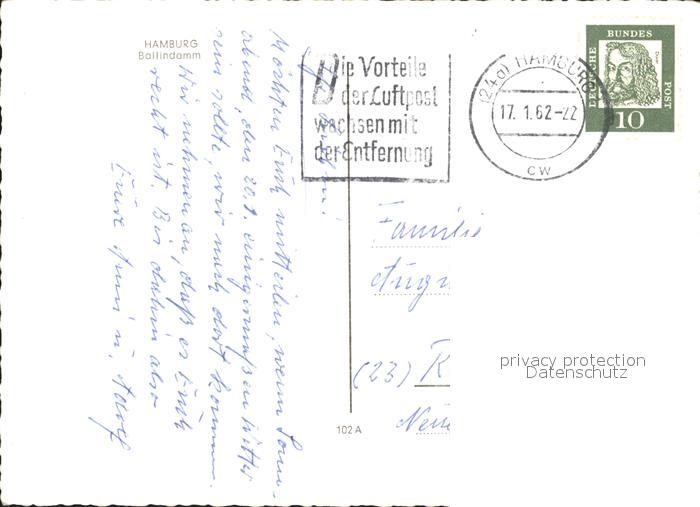 HAMBURG
Ballindamm
Die Vorteile
der Luftpost
wachsen mit
der Entfernung
(24a) HAMBURG
17. 1. 62-22
cw
DEUTSCHE
BUNDES
POST
Dürer
10
Möchten Euch mitteilen, wenn Sonn-
abend, den 20.1. einigermaßen Wetter
sein sollte, wir nach dort kommen.
Wir nehmen an, daß es Euch
recht ist. Bis dahin also
Eure Anni u. Adolf
Familie
(23)
102 A
privacy protection
Datenschutz